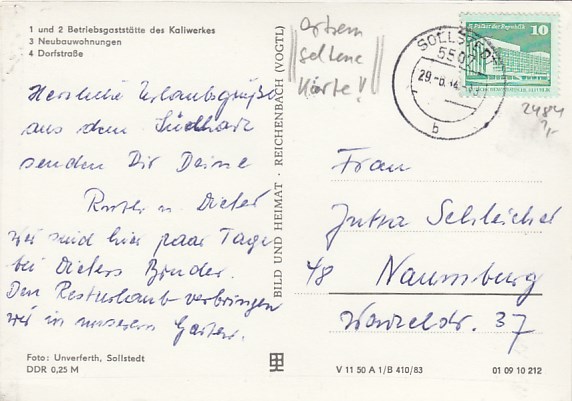 1 und 2 Betriebsgaststätte des Kaliwerkes
3 Neubauwohnungen
4 Dorfstraße
Herzliche Urlaubsgrüße
aus dem Südharz
senden Dir Deine
Ruth u. Dieter
Wir sind hier paar Tage
bei Dieters Bruder.
Den Resturlaub verbringen
wir in unserem Garten.
Foto: Unverferth, Sollstedt
DDR 0,25 M
BILD UND HEIMAT · REICHENBACH (VOGTL)
seltene
Karte!
SOLLSTEDT
5507
b
10
Palast der Republik
DDR
2484
Frau
Jutta Schleicher
48 Naumburg
37
V 11 50 A 1/B 410/83
01 09 10 212